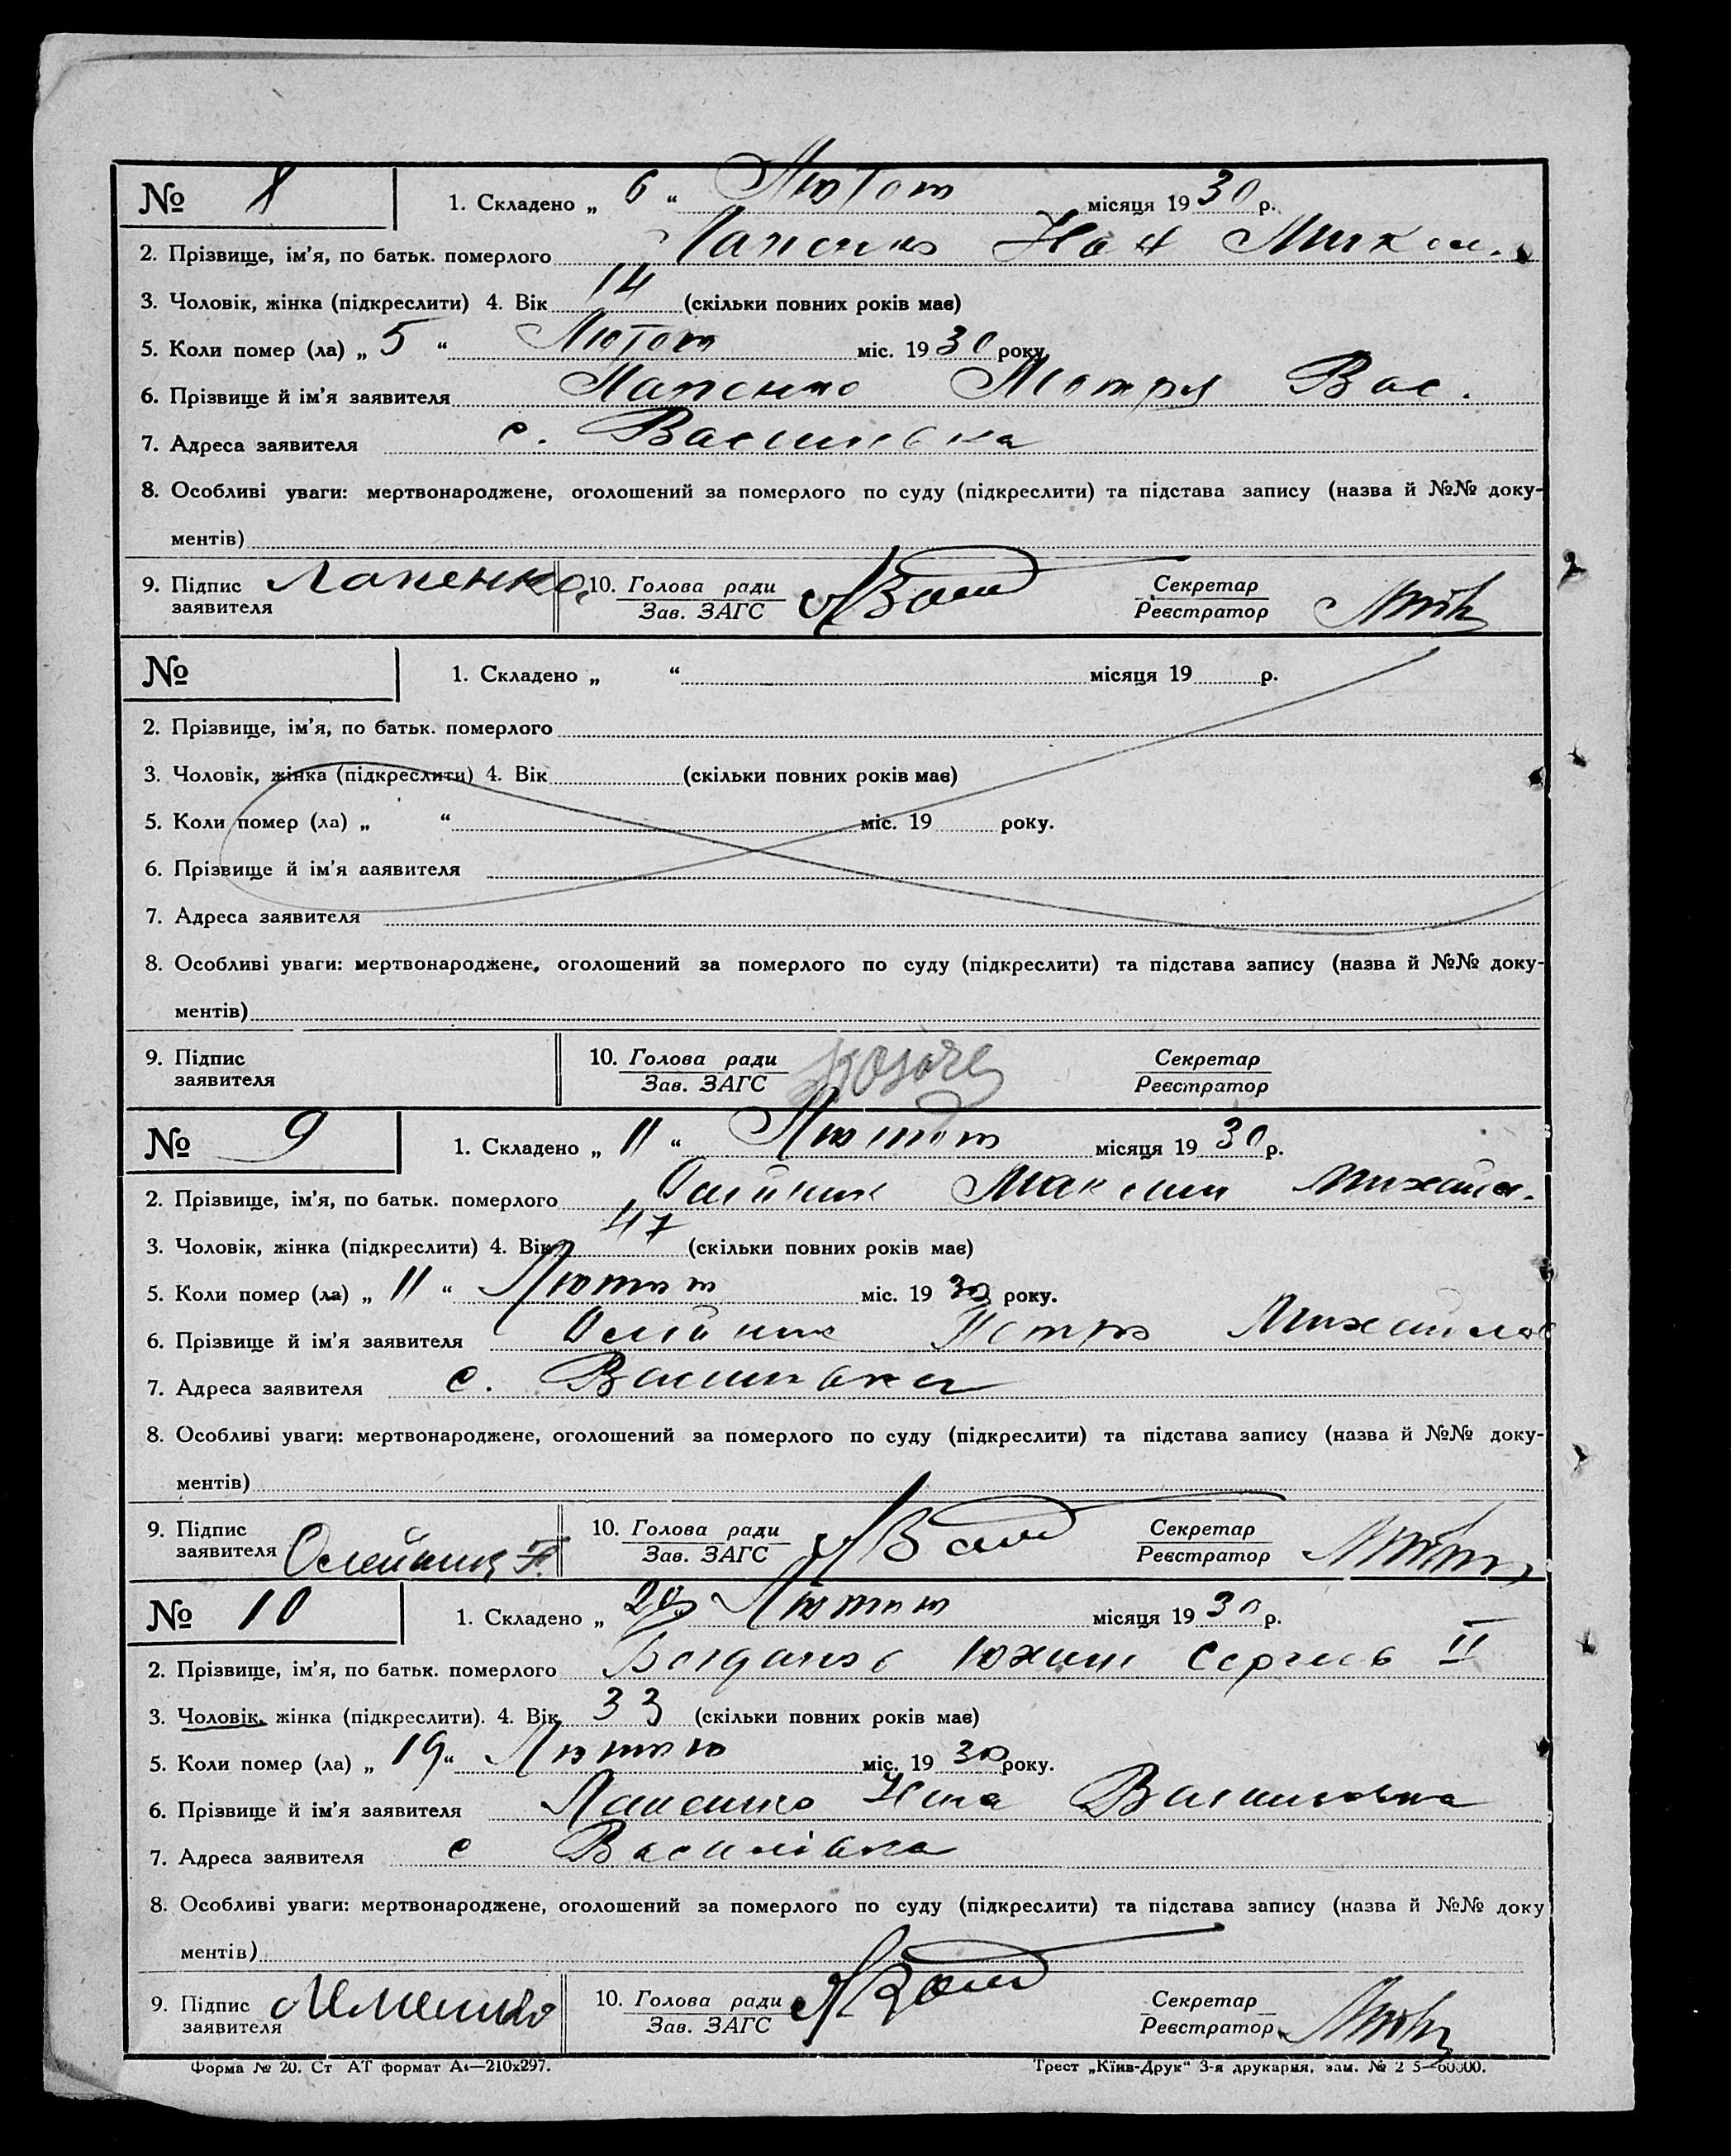 № 8 1. Складено „ 6 “ Лютого місяця 1930 р.
2. Прізвище, ім'я, по батьк. померлого Микол.
3. Чоловік, жінка (підкреслити) 4. Вік 14 (скільки повних років має)
5. Коли помер (ла) „ 5 “ Лютого міс. 1930 року
6. Прізвище й ім'я заявителя Лапенко Мотря Вас.
7. Адреса заявителя с. Василівка
8. Особливі уваги: мертвонароджене, оголошений за померлого по суду (підкреслити) та підстава запису (назва й №№ доку-
ментів)
9. Підпис заявителя Лапенко 10. Голова ради Зав. ЗАГС Секретар Реєстратор
№ 1. Складено „ “ місяця 19 р.
2. Прізвище, ім'я, по батьк. померлого
3. Чоловік, жінка (підкреслити) 4. Вік (скільки повних років має)
5. Коли помер (ла) „ “ міс. 19 року.
6. Прізвище й ім'я заявителя
7. Адреса заявителя
8. Особливі уваги: мертвонароджене, оголошений за померлого по суду (підкреслити) та підстава запису (назва й №№ доку-
ментів)
9. Підпис заявителя 10. Голова ради Зав. ЗАГС Секретар Реєстратор
№ 9 1. Складено „ 11 “ Лютого місяця 1930 р.
2. Прізвище, ім'я, по батьк. померлого Олійник Максим Михайл.
3. Чоловік, жінка (підкреслити) 4. Вік 47 (скільки повних років має)
5. Коли помер (ла) „ 11 “ Лютого міс. 1930 року.
6. Прізвище й ім'я заявителя Олійник Петро Михайлов
7. Адреса заявителя с. Василівка
8. Особливі уваги: мертвонароджене, оголошений за померлого по суду (підкреслити) та підстава запису (назва й №№ доку-
ментів)
9. Підпис заявителя Олейник П. 10. Голова ради Зав. ЗАГС Секретар Реєстратор
№ 10 1. Складено „ 20 “ Лютого місяця 1930 р.
2. Прізвище, ім'я, по батьк. померлого Богданов Юхим Сергеев II
3. Чоловік, жінка (підкреслити). 4. Вік 33 (скільки повних років має)
5. Коли помер (ла) „ 19 “ Лютого міс. 1930 року.
6. Прізвище й ім'я заявителя
7. Адреса заявителя с Василівка
8. Особливі уваги: мертвонароджене, оголошений за померлого по суду (підкреслити) та підстава запису (назва й №№ доку
ментів)
9. Підпис заявителя 10. Голова ради Зав. ЗАГС Секретар Реєстратор
Форма № 20. Ст АТ формат А4—210x297. Трест „Київ-Друк“ 3-я друкарня, зам. №